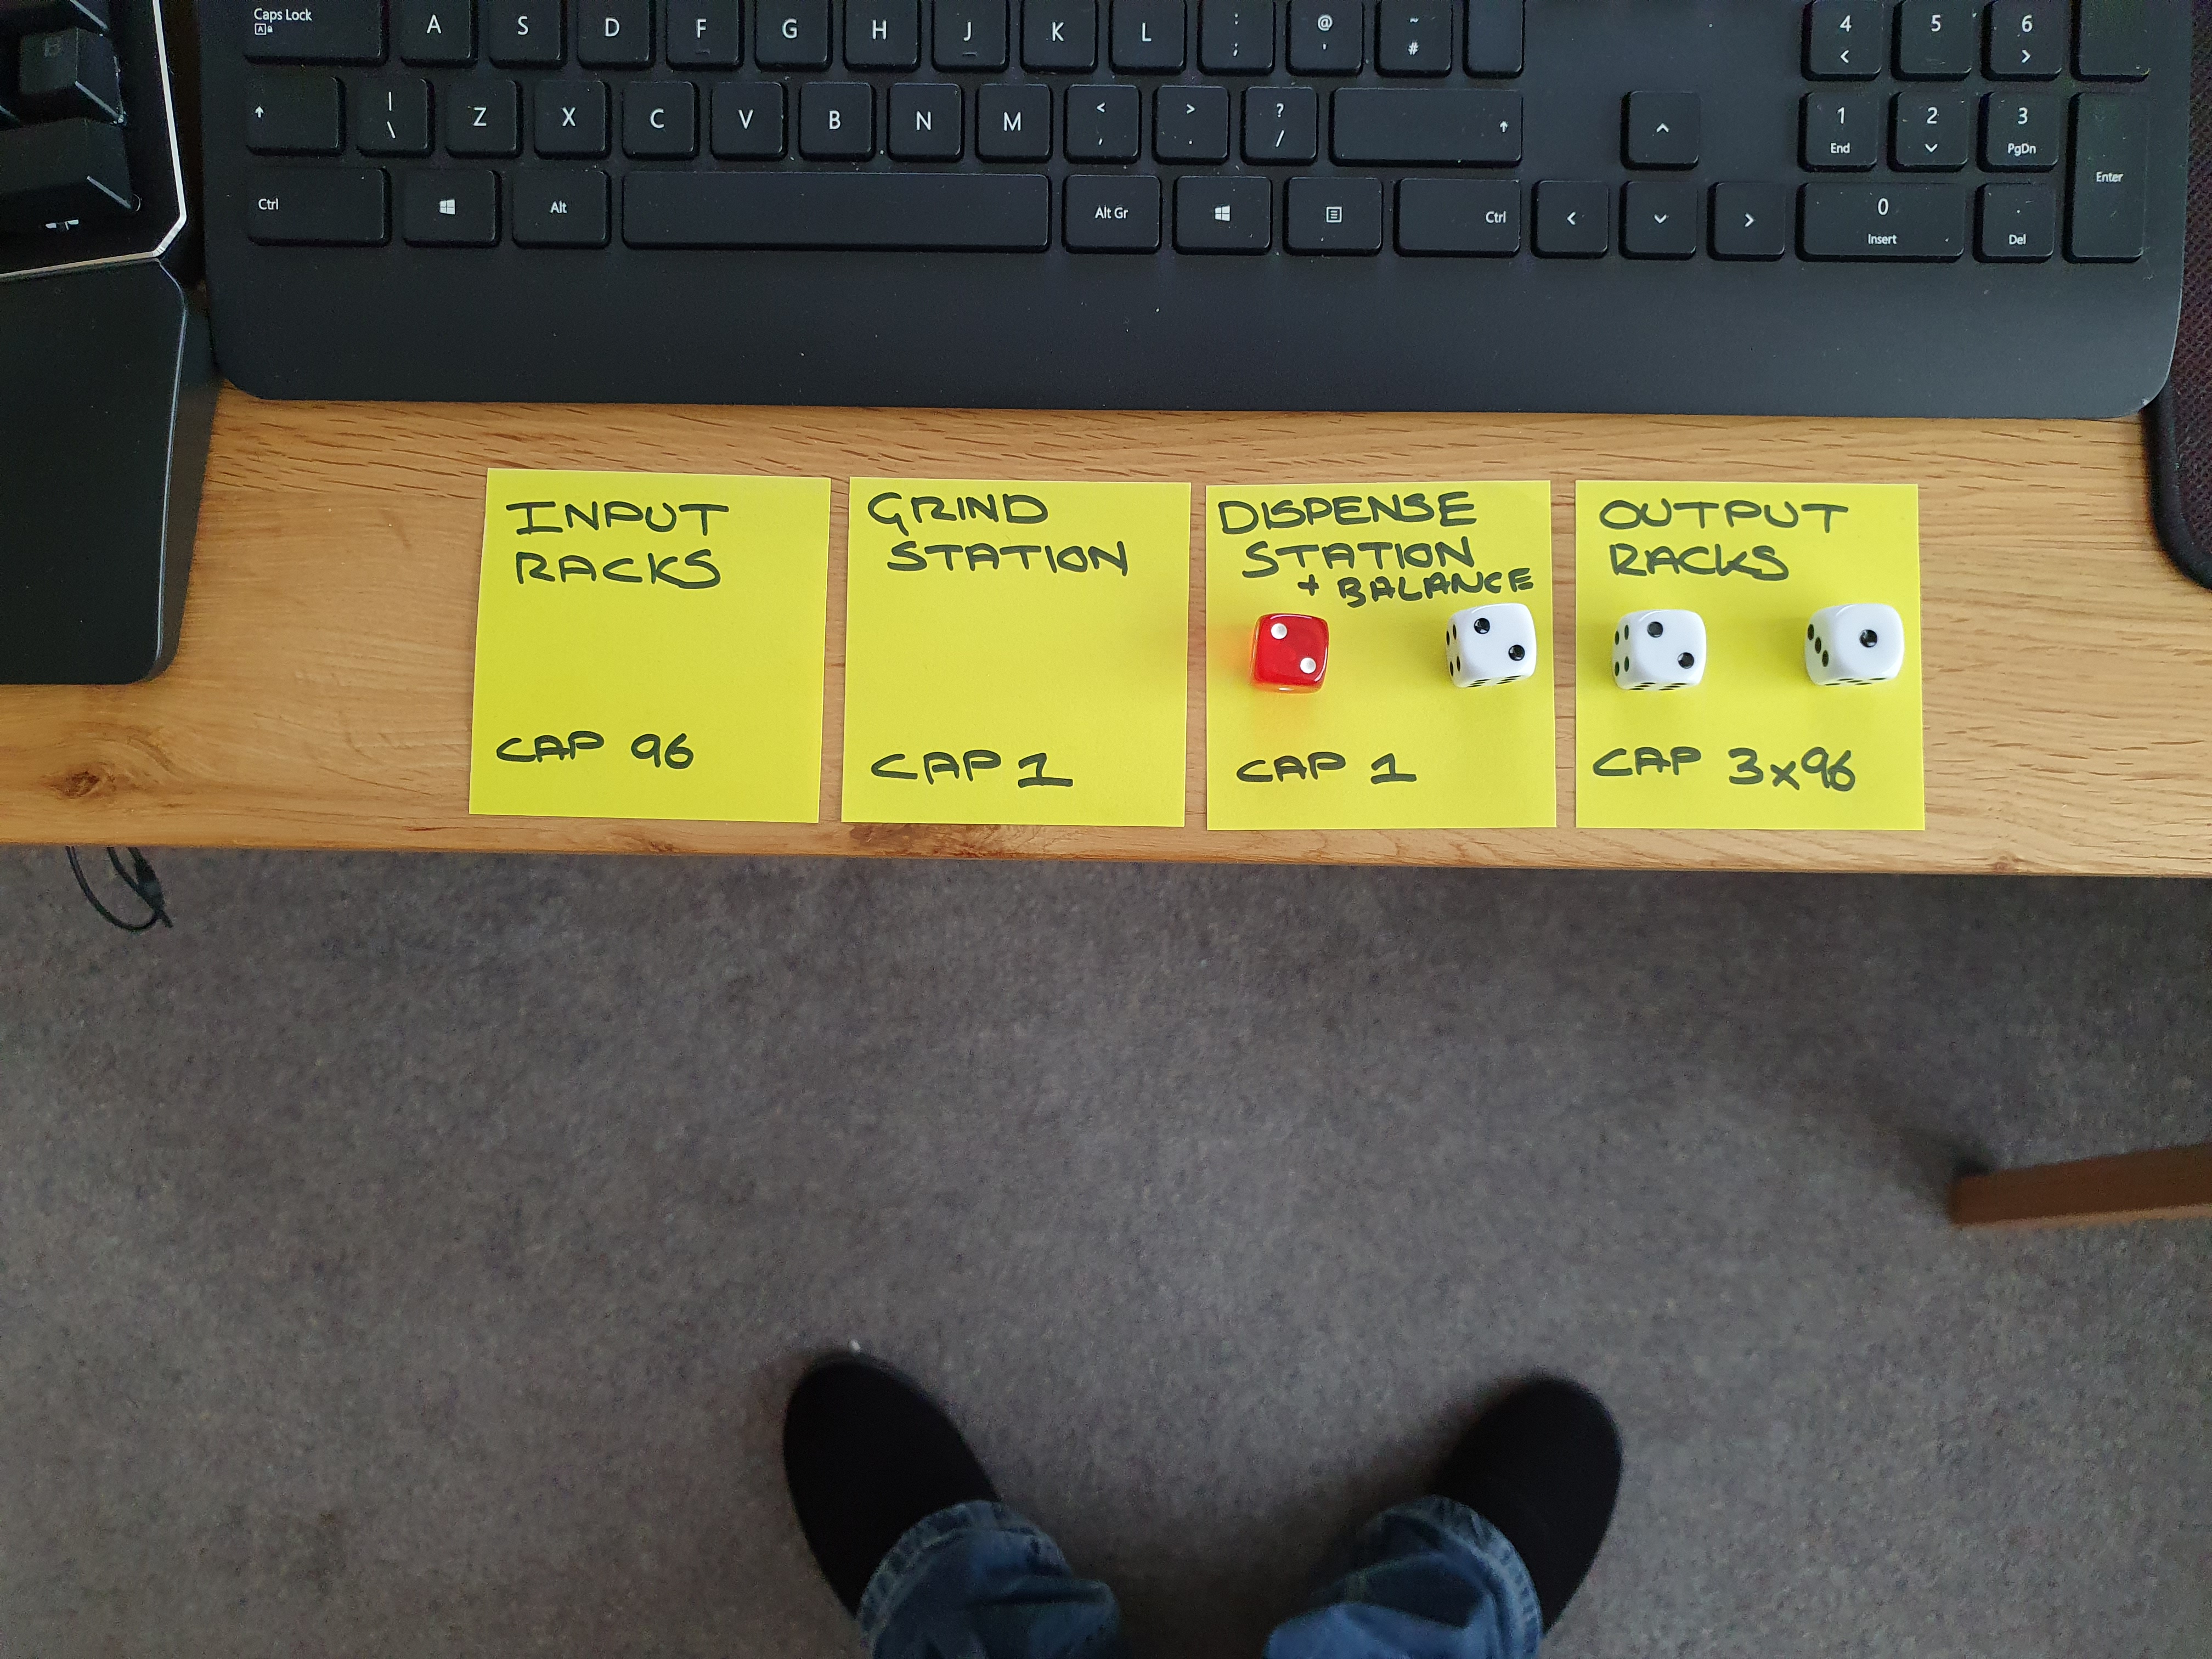 Caps Lock
A
S
D
F
G
H
J
K
L
: ;
@ '
~ #
4 <
5
6 >
| \
Z
X
C
V
B
N
M
< ,
> .
? /
1 End
2
3 PgDn
Enter
Ctrl
Alt
Alt Gr
Ctrl
0 Insert
. Del
INPUT
RACKS
CAP 96
GRIND
STATION
CAP 1
DISPENSE
STATION
+ BALANCE
CAP 1
OUTPUT
RACKS
CAP 3x96